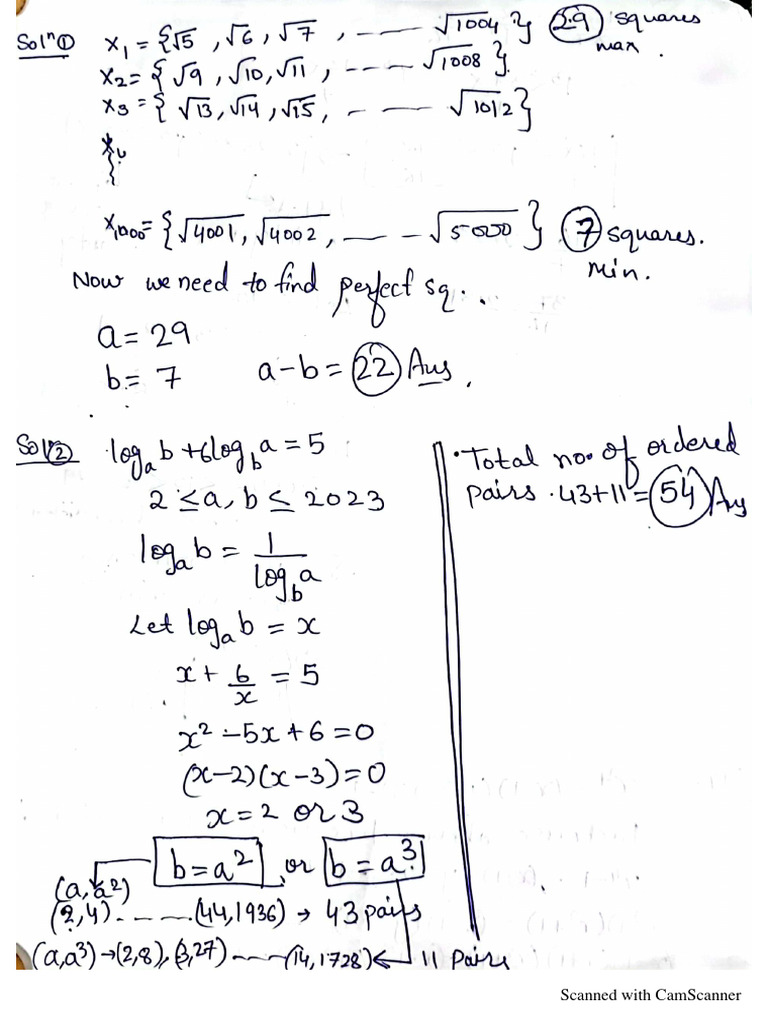 Solⁿ① x₁ = {√5, √6, √7, ----- √1004} 29 squares max.
x₂= {√9, √10, √11, ----- √1008}.
x₃ = {√13, √14, √15, ----- √1012}
x₁₀₀₀= {√4001, √4002, ----- √5000} 7 squares. Min.
Now we need to find perfect sq..
a = 29
b = 7 a-b = 22 Ans.
Sol② logₐb + 6log_b a = 5
2 ≤ a, b ≤ 2023
logₐb = 1/log_b a
Let logₐb = x
x + 6/x = 5
x² - 5x + 6 = 0
(x-2)(x-3) = 0
x = 2 or 3
b = a² or b = a³
(a, a²)
(2,4) ----- (44,1936) → 43 pairs
(a,a³) → (2,8), (3,27) ----- (14,1728) ← 11 pairs
• Total no. of ordered
pairs . 43+11 = 54 Ans
Scanned with CamScanner